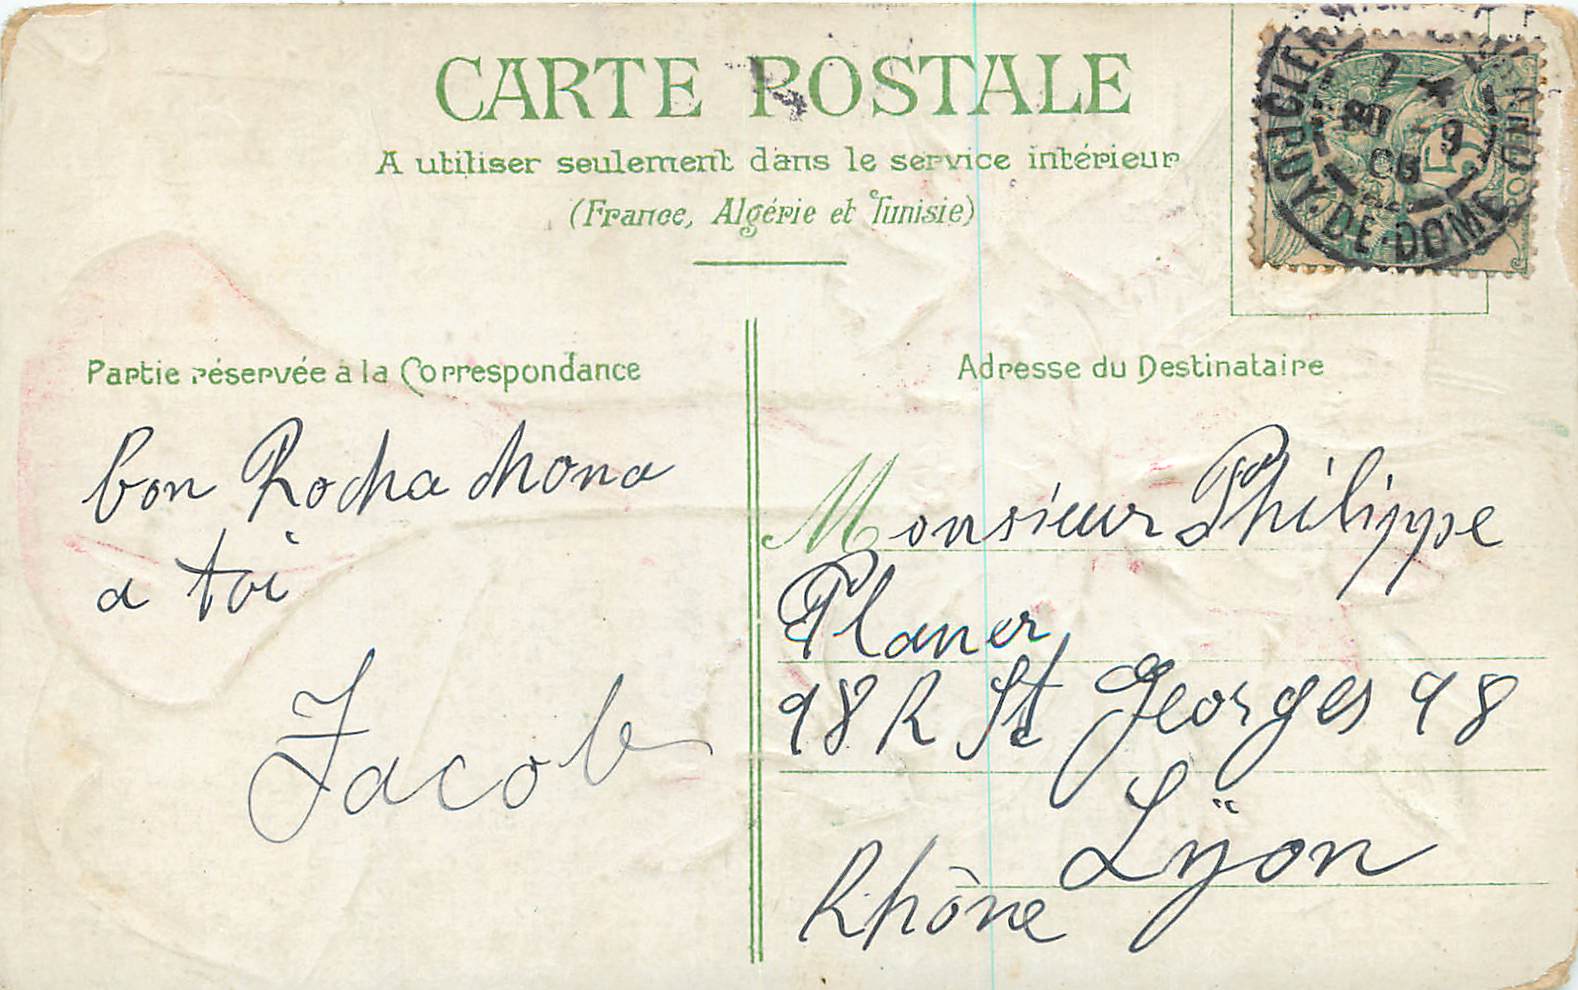 CARTE POSTALE
A utiliser seulement dans le service intérieur
(France, Algérie et Tunisie)
Partie réservée à la Correspondance
bon Rocha chona
a toi
Jacob
Adresse du Destinataire
Monsieur Philippe
Planer
98 R St Georges 98
Lÿon
Rhône
PUY-DE-DOME